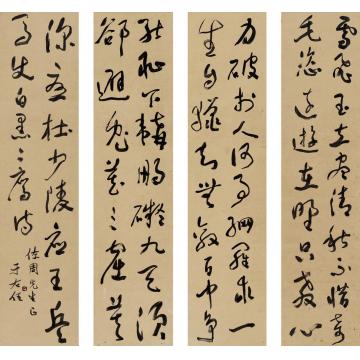 雪飛玉立盡清秋不惜奇
毛恣遠遊在野只教心
力破於人何事網羅求一
生自獵知無敵百中爭
能恥下韝鵬礙九天須
郤避兔藏三窟莫
深憂杜少陵應王兵
馬使白黑二鷹詩
佐周先生正
于右任